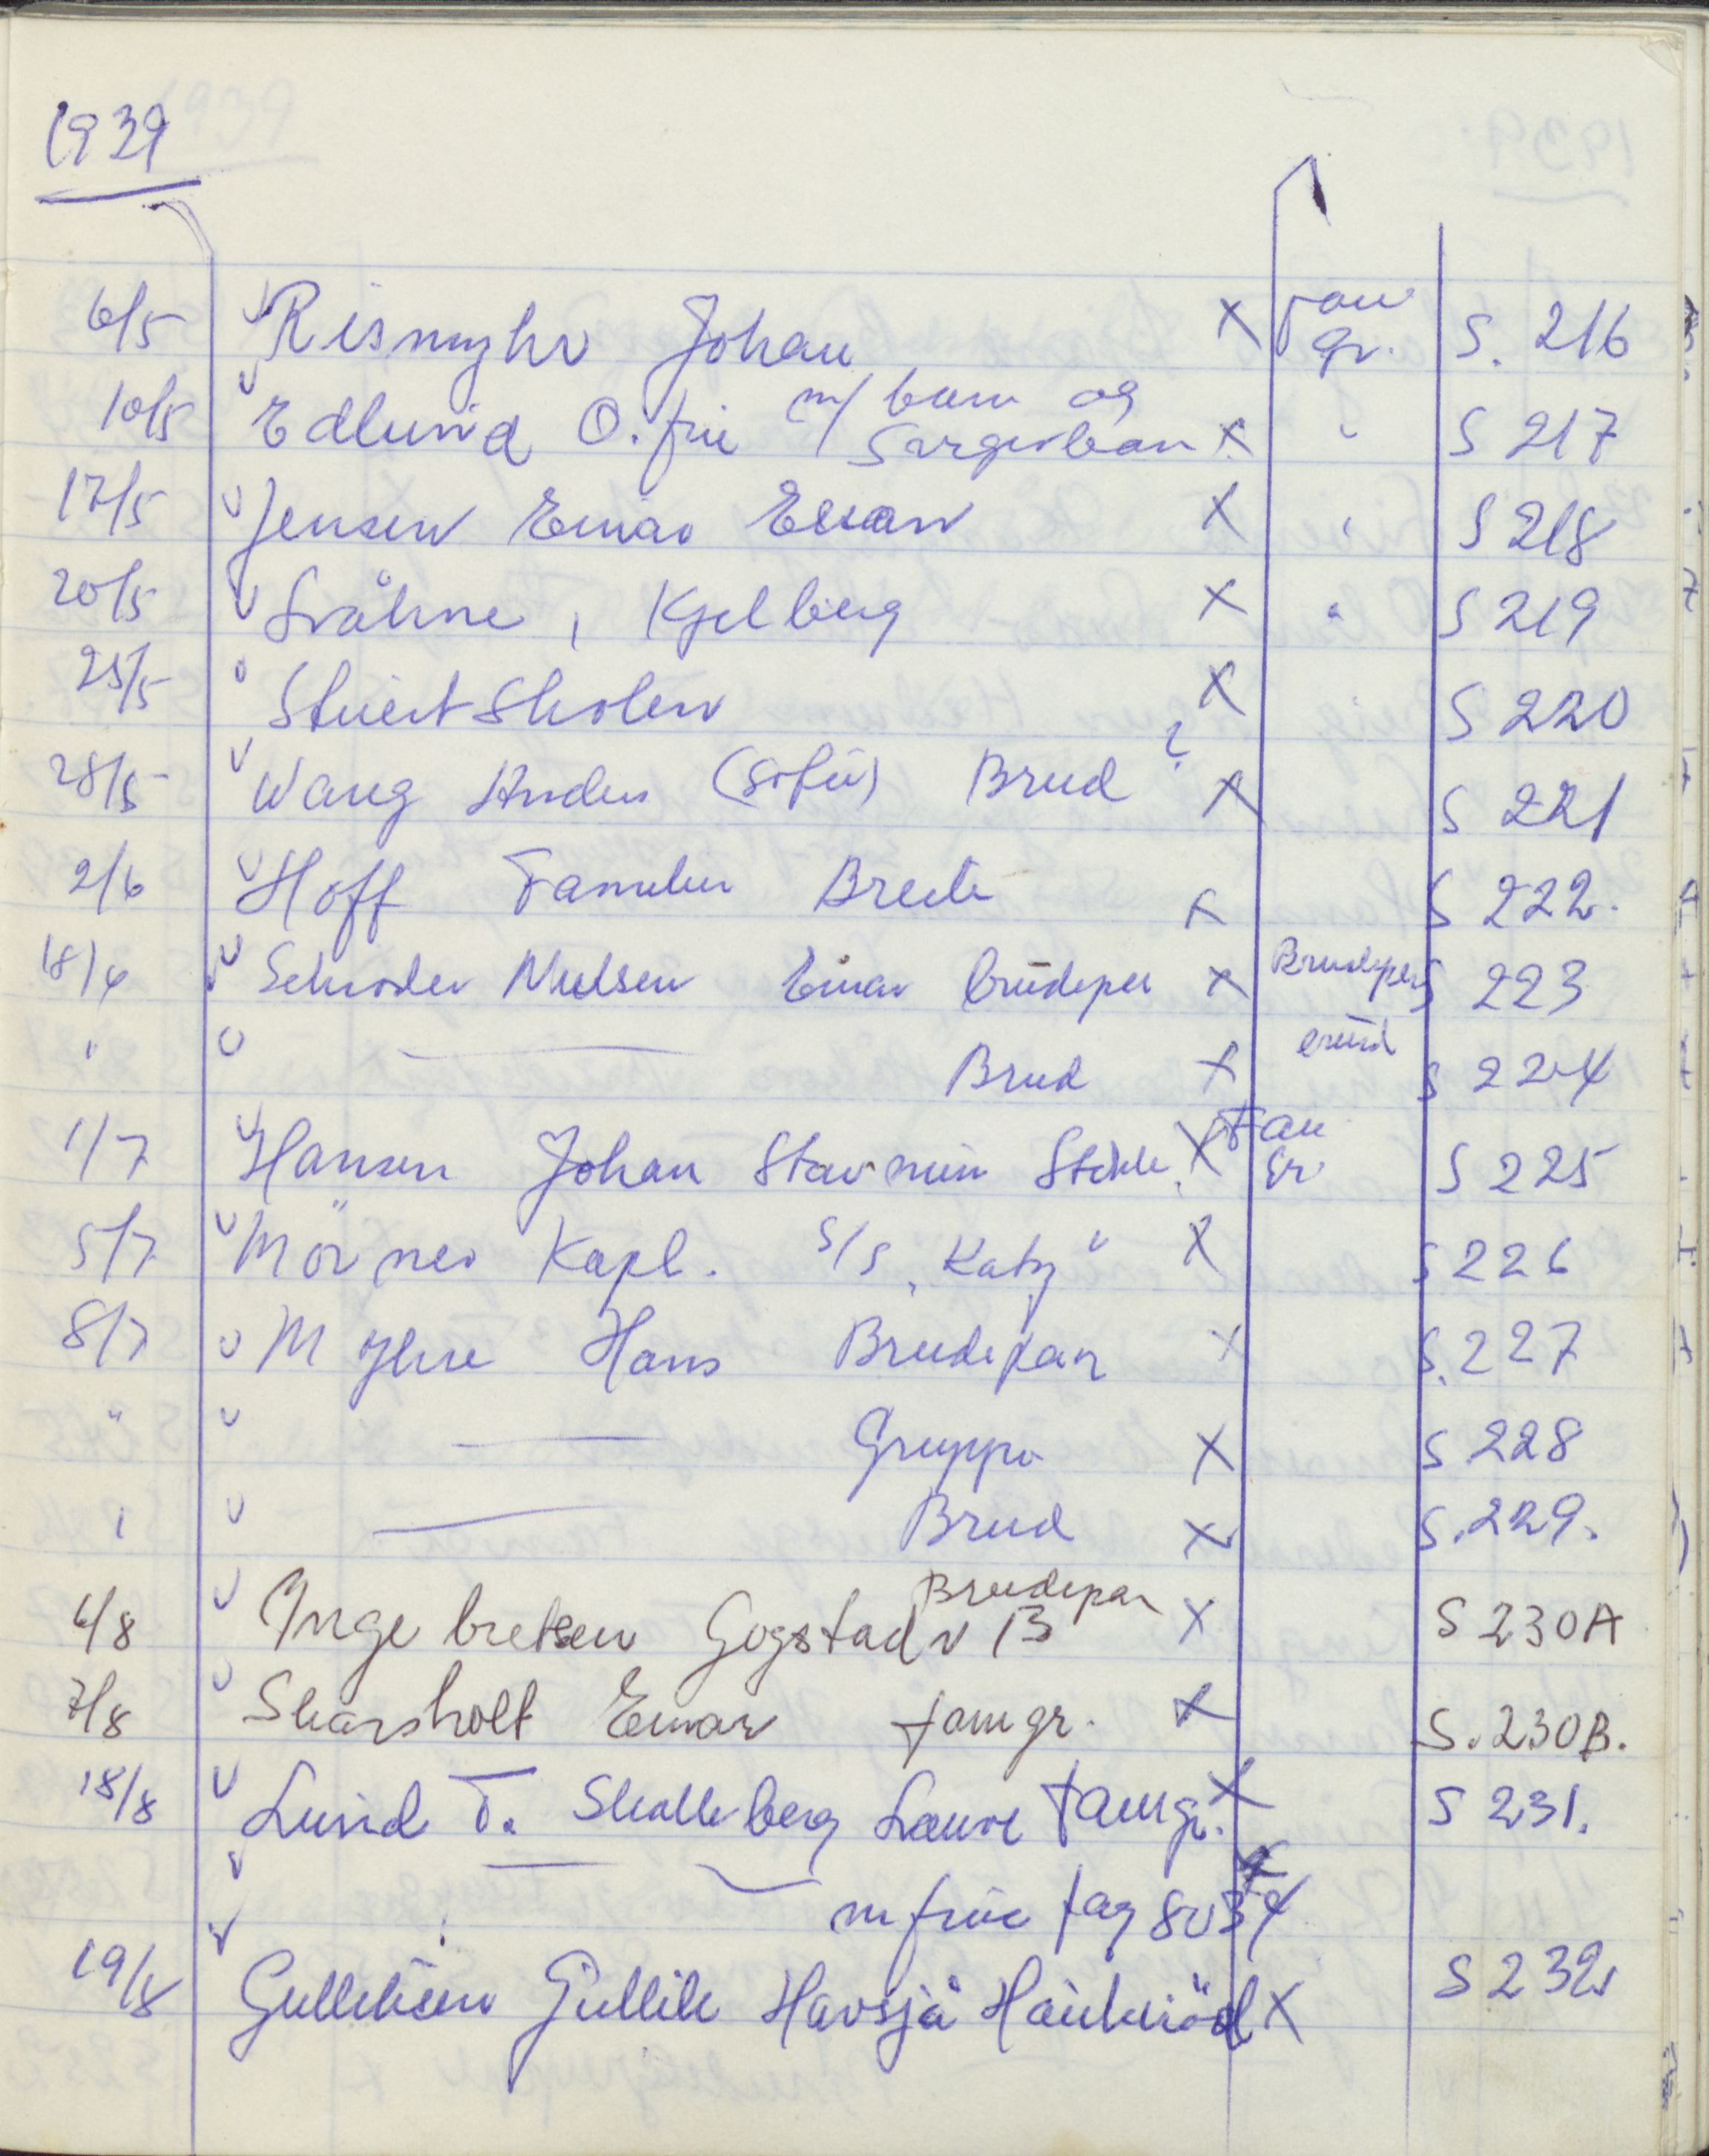 1939
6/5 Rismyhr Johan X Fam gr. S. 216
10/5 Edlund O. fru m/ barn og X " S 217
17/5 Jensen Einar X " S 218
20/5 Kjelberg X " S 219
25/5 X " S 220
28/5 Wang (Sofie) Brud ? X S 221
2/6 Hoff Familien X S 222.
18/6 Schrøder Nielsen Einar brudepar X Brudepar S 223
" — Brud X brud S 224
1/7 Hansen Johan X Fam Gr S 225
5/7 Mörner Kapt. S/S "Katy" X S 226
8/7 Myhre Hans Brudepar X S. 227
" — Gruppe X S 228
" — Brud X S. 229.
Brudepar
6/8 Ingebretsen Gogstad v 13 X S 230A
7/8 Skarsholt Einar fam gr. X S. 230B.
18/8 Lund T. Skalleberg fam gr. X S 231.
— m frue X
19/8 Gulliksen Gullik Havsjå Haukerød X S 232